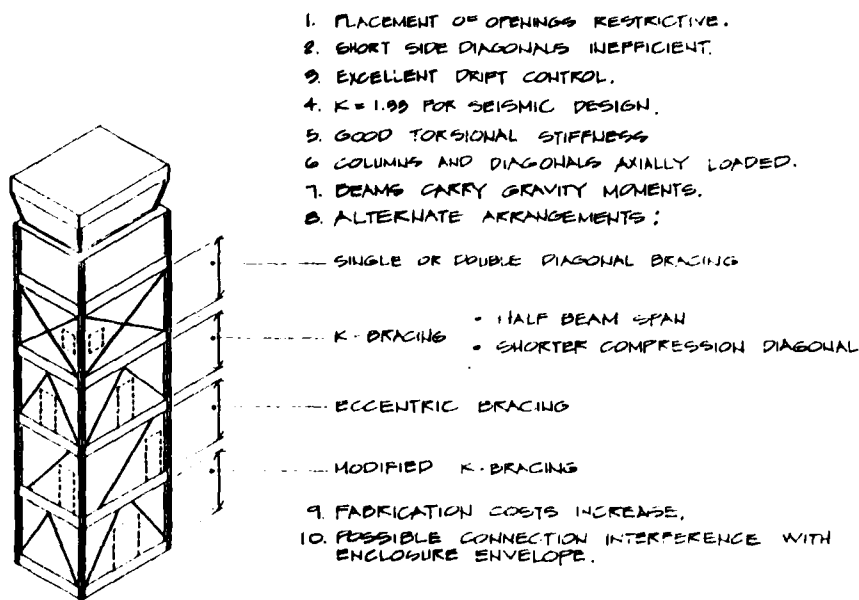 1. PLACEMENT OF OPENINGS RESTRICTIVE.
2. SHORT SIDE DIAGONALS INEFFICIENT.
3. EXCELLENT DRIFT CONTROL.
4. K = 1.33 FOR SEISMIC DESIGN.
5. GOOD TORSIONAL STIFFNESS
6 COLUMNS AND DIAGONALS AXIALLY LOADED.
7. BEAMS CARRY GRAVITY MOMENTS.
8. ALTERNATE ARRANGEMENTS:
SINGLE OR DOUBLE DIAGONAL BRACING
K-BRACING • HALF BEAM SPAN
• SHORTER COMPRESSION DIAGONAL
ECCENTRIC BRACING
MODIFIED K-BRACING
9. FABRICATION COSTS INCREASE.
10. POSSIBLE CONNECTION INTERFERENCE WITH
ENCLOSURE ENVELOPE.